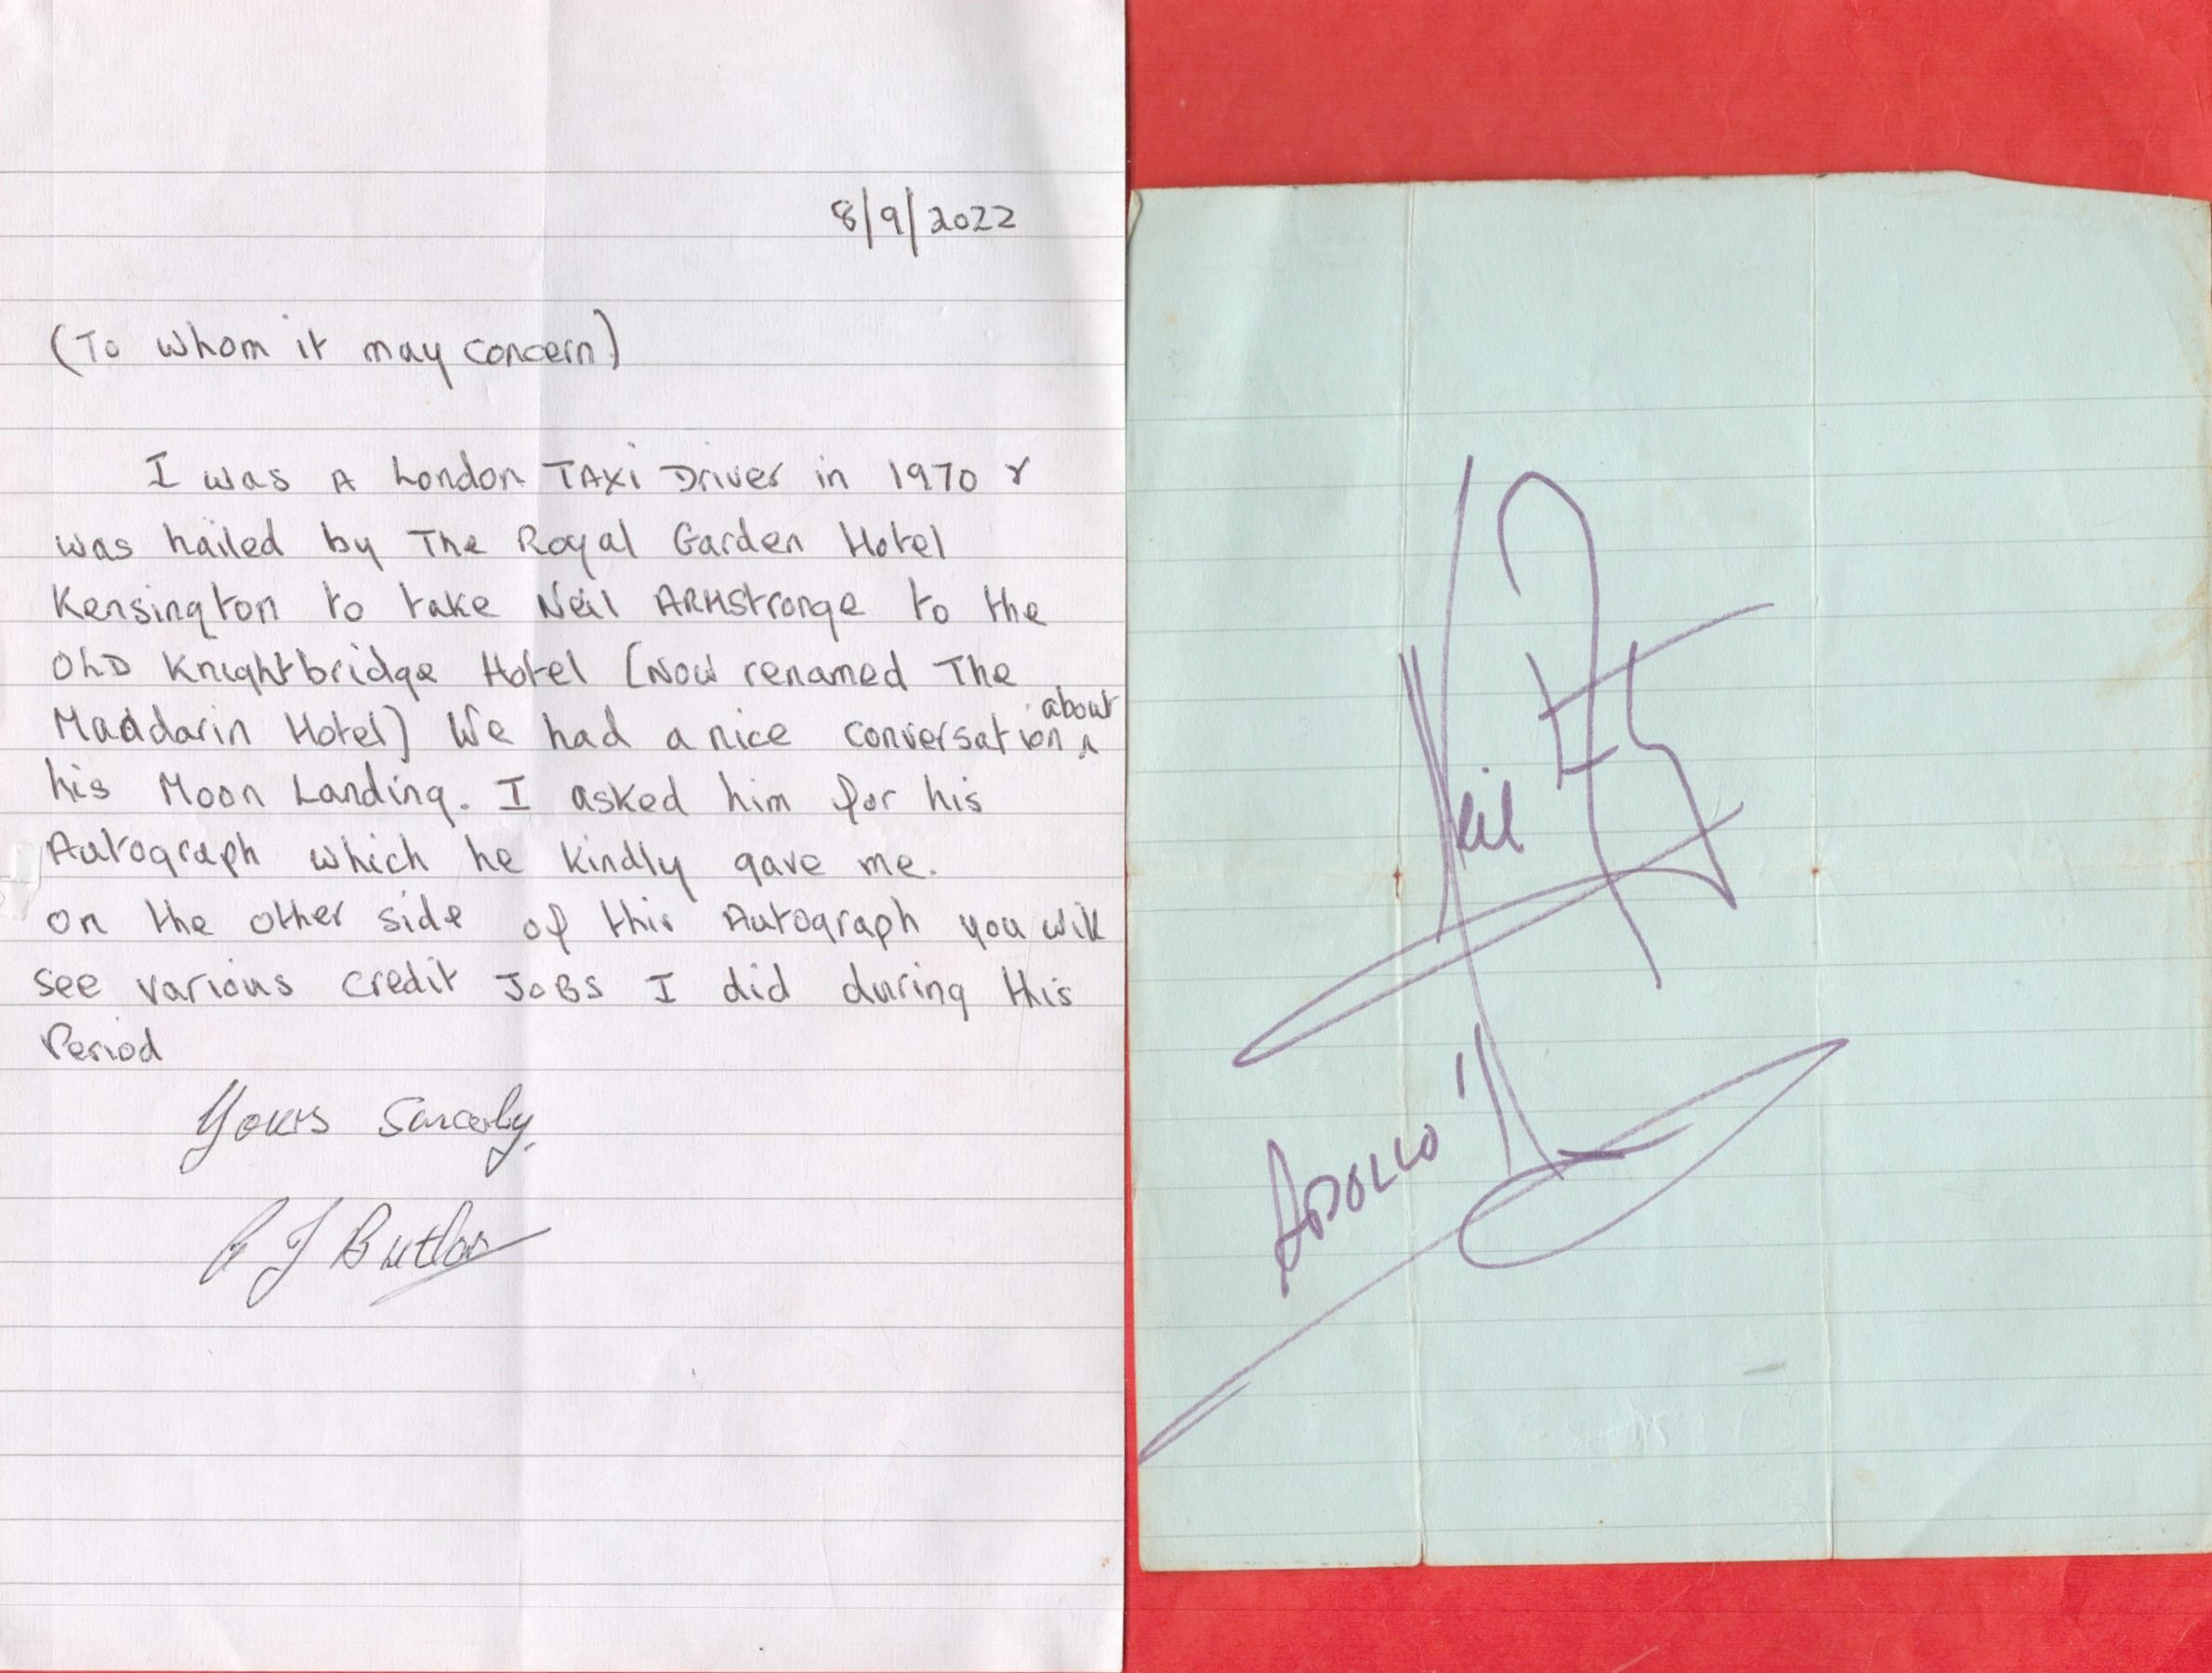 8/9/2022
(To whom it may concern)
I was A London TAXi Driver in 1970 &
was hailed by The Royal Garden Hotel
Kensington to take Neil ARMStronge to the
OLD Knightbridge Hotel [Now renamed The
Maddarin Hotel] We had a nice conversation about
his Moon Landing. I asked him for his
Autograph which he kindly gave me.
on the other side of this Autograph you will
see various credit JoBs I did during this
Period
Yours Sincerly,
J Butler
Neil
APOLLO 11